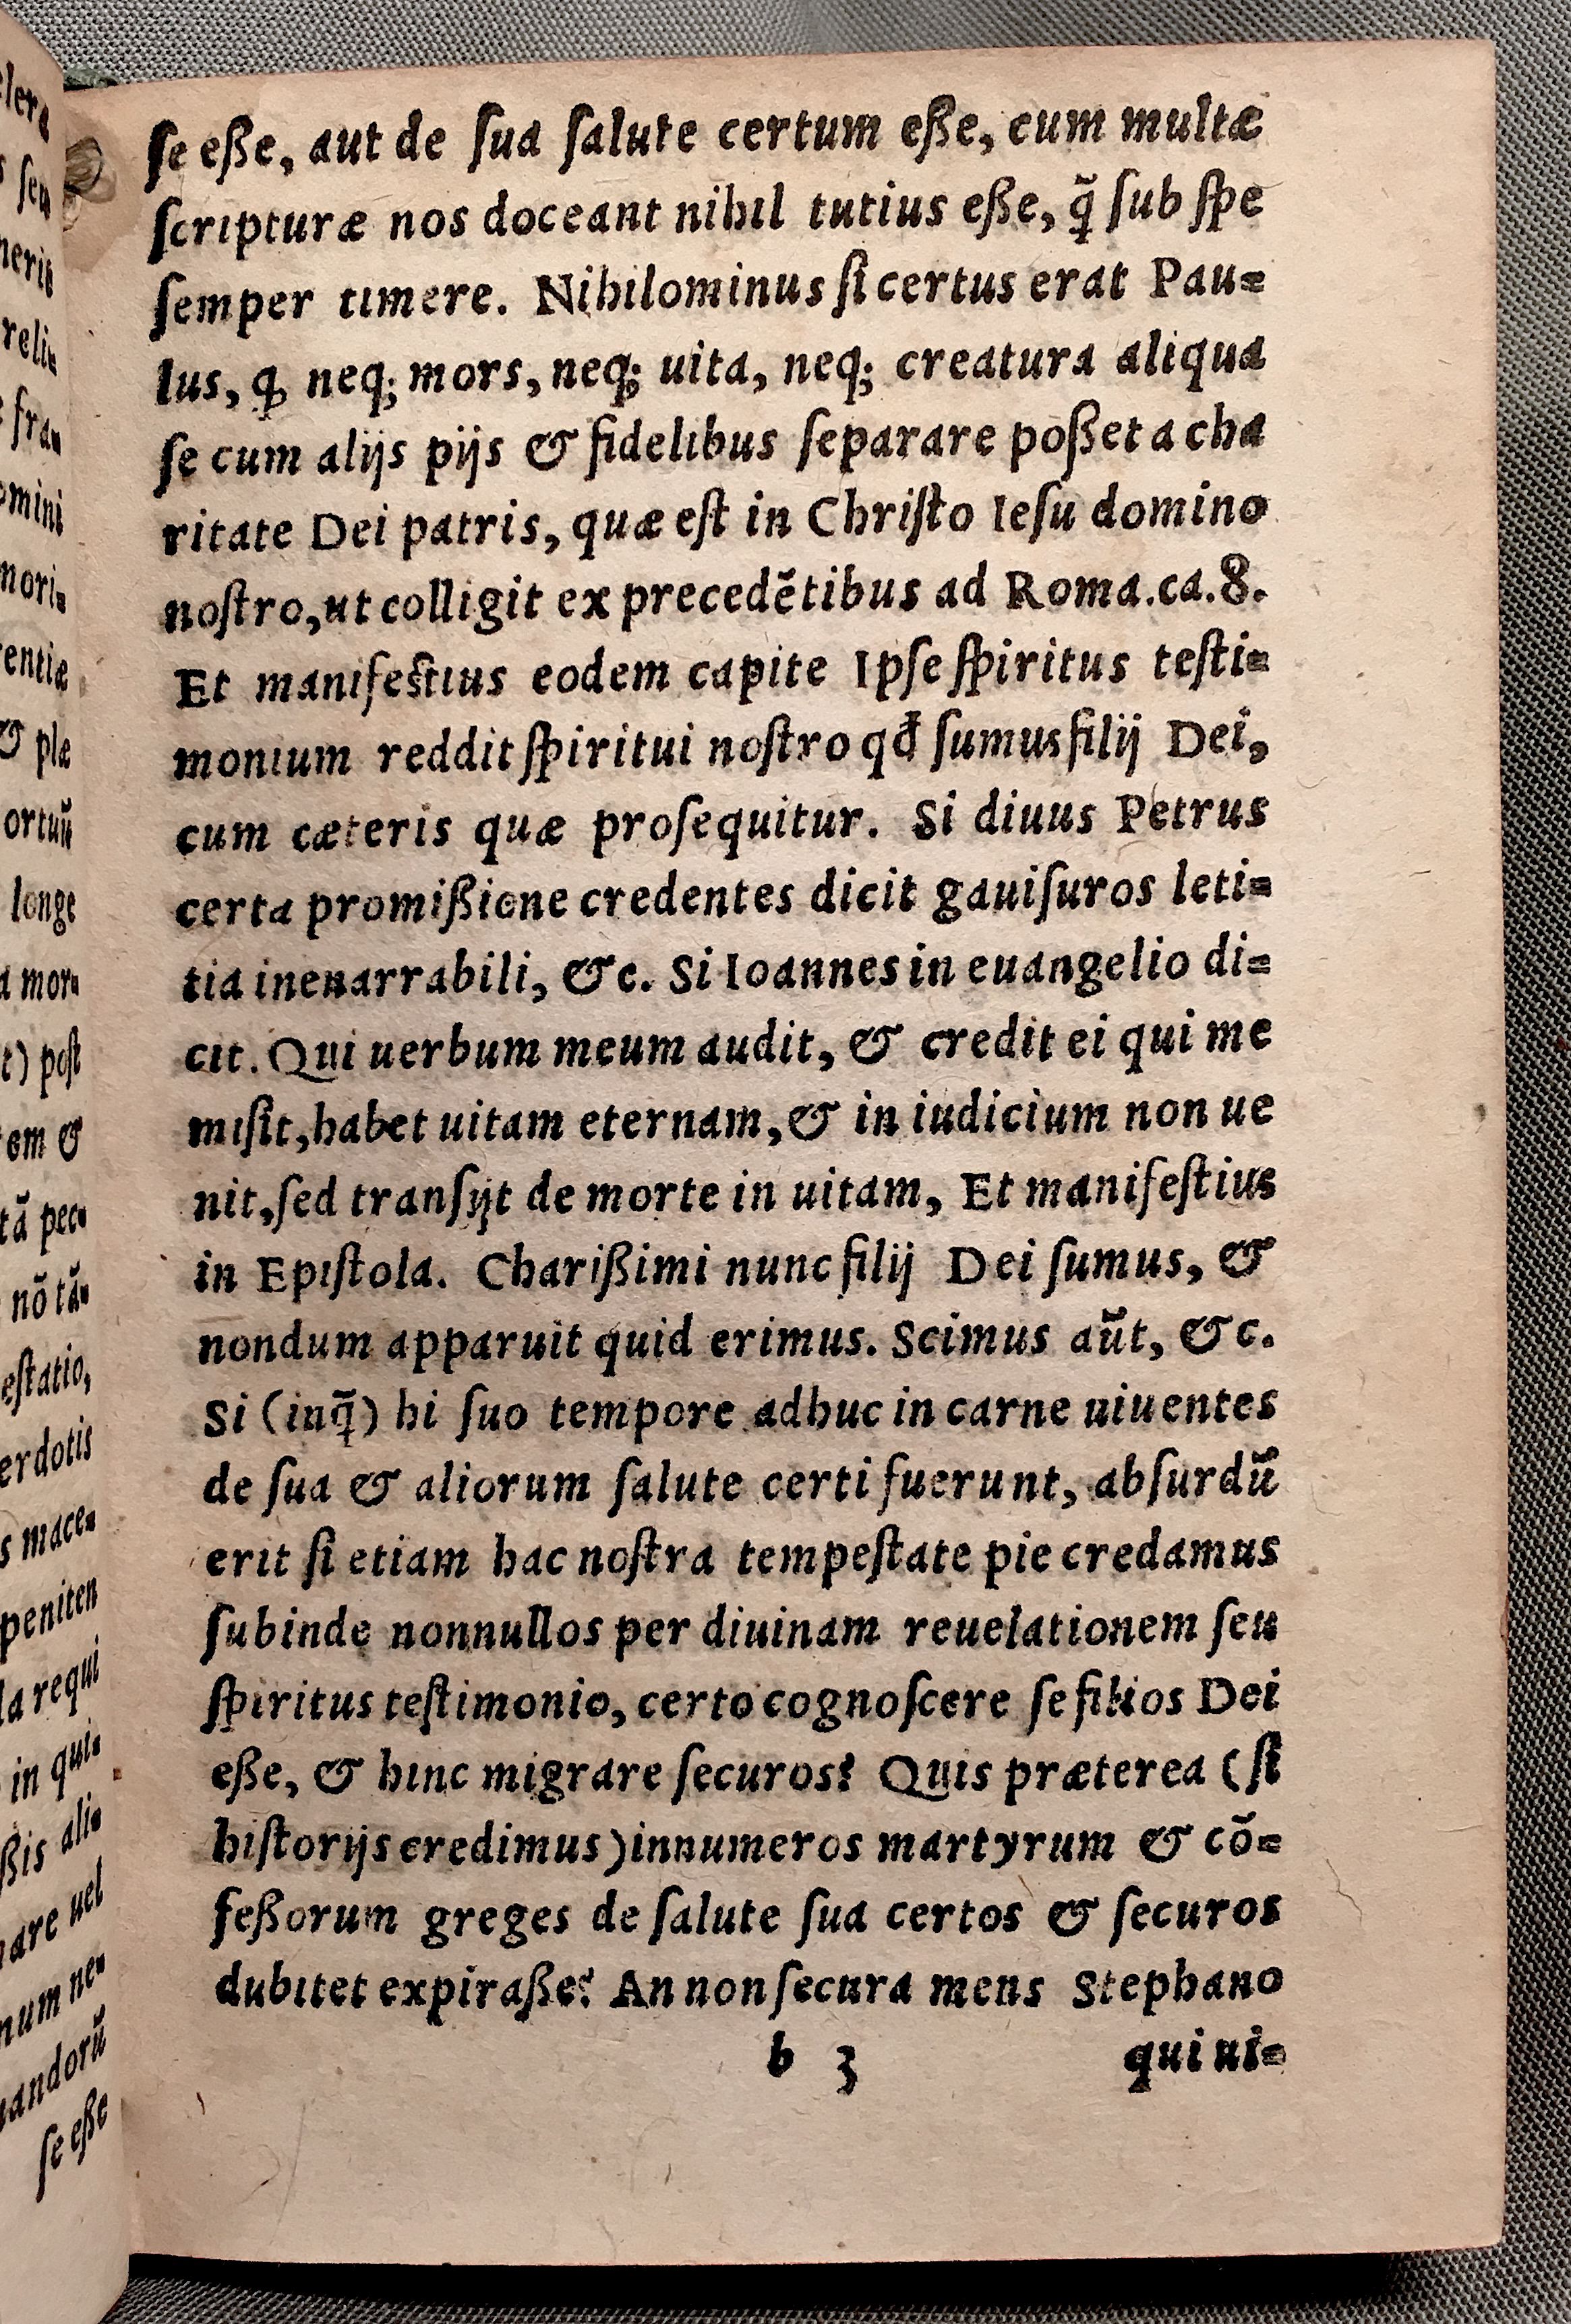 ſe eße, aut de ſua ſalute certum eße, cum multæ
ſcripturæ nos doceant nihil tutius eße, q̃ ſub ſpe
ſemper timere. Nihilominus ſi certus erat Pau=
lus, ꝙ neq; mors, neq; uita, neq; creatura aliqua
ſe cum alijs pijs & fidelibus ſeparare poßet a cha
ritate Dei patris, quæ eſt in Chriſto Ieſu domino
noſtro, ut colligit ex precedẽtibus ad Roma.ca.8.
Et manifeſtius eodem capite Ipſe ſpiritus teſti=
monium reddit ſpiritui noſtro qđ ſumus filij Dei,
cum cæteris quæ proſequitur. Si diuus Petrus
certa promißione credentes dicit gauiſuros leti=
tia inenarrabili, &c. Si Ioannes in euangelio di=
cit. Qui uerbum meum audit, & credit ei qui me
miſit, habet uitam eternam, & in iudicium non ue
nit, ſed tranſijt de morte in uitam, Et manifeſtius
in Epiſtola. Charißimi nunc filij Dei ſumus, &
nondum apparuit quid erimus. Scimus aũt, &c.
Si (inq̃) hi ſuo tempore adhuc in carne uiuentes
de ſua & aliorum ſalute certi fuerunt, abſurdũ
erit ſi etiam hac noſtra tempeſtate pie credamus
ſubinde nonnullos per diuinam reuelationem ſeu
ſpiritus teſtimonio, certo cognoſcere ſe filios Dei
eße, & hinc migrare ſecuros? Quis præterea (ſi
hiſtorijs credimus) innumeros martyrum & cõ=
feßorum greges de ſalute ſua certos & ſecuros
dubitet expiraße? An non ſecura mens Stephano
b 3 qui ui=